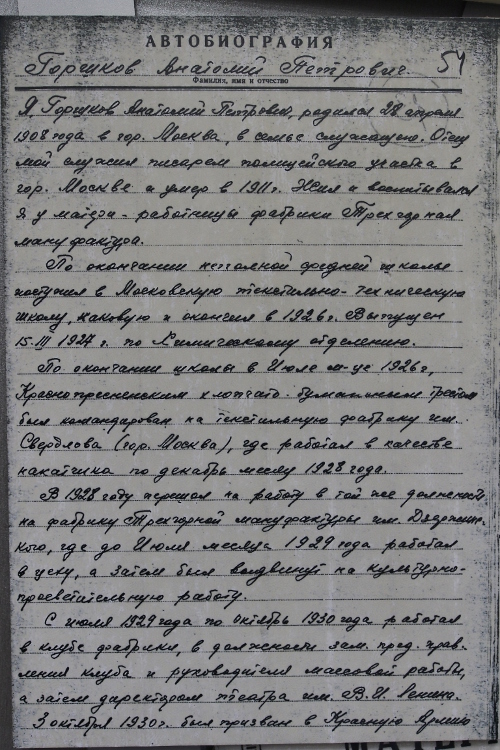 АВТОБИОГРАФИЯ
Горшков Анатолий Петрович. 54
Фамилия, имя и отчество
Я, Горшков Анатолий Петрович, родился 28 апреля
1908 года в гор. Москва, в семье служащего. Отец
мой служил писарем полицейского участка в
гор. Москве и умер в 1911 г. Жил и воспитывался
я у матери - работницы фабрики Трехгорная
мануфактура.
По окончании неполной средней школы
поступил в Московскую текстильно-техническую
школу, каковую и окончил в 1926 г. Выпущен
15.III 1927 г. по Химическому отделению.
По окончании школы в Июле м-це 1926 г,
Краснопресненским хлопчато-бумажным трестом
был командирован на текстильную фабрику им.
Свердлова (гор. Москва), где работал в качестве
накатчика по декабрь месяц 1928 года.
В 1928 году перешел на работу в той же должности
на фабрику Трехгорной мануфактуры им. Дзержинс-
кого, где до Июля месяца 1929 года работал
в цеху, а затем был выдвинут на культурно-
просветительную работу.
С июля 1929 года по октябрь 1930 года работал
в клубе фабрики, в должности зам. пред. прав-
ления клуба и руководителя массовой работы,
а затем директором театра им. В.И. Ленина.
3 октября 1930 г. был призван в Красную Армию